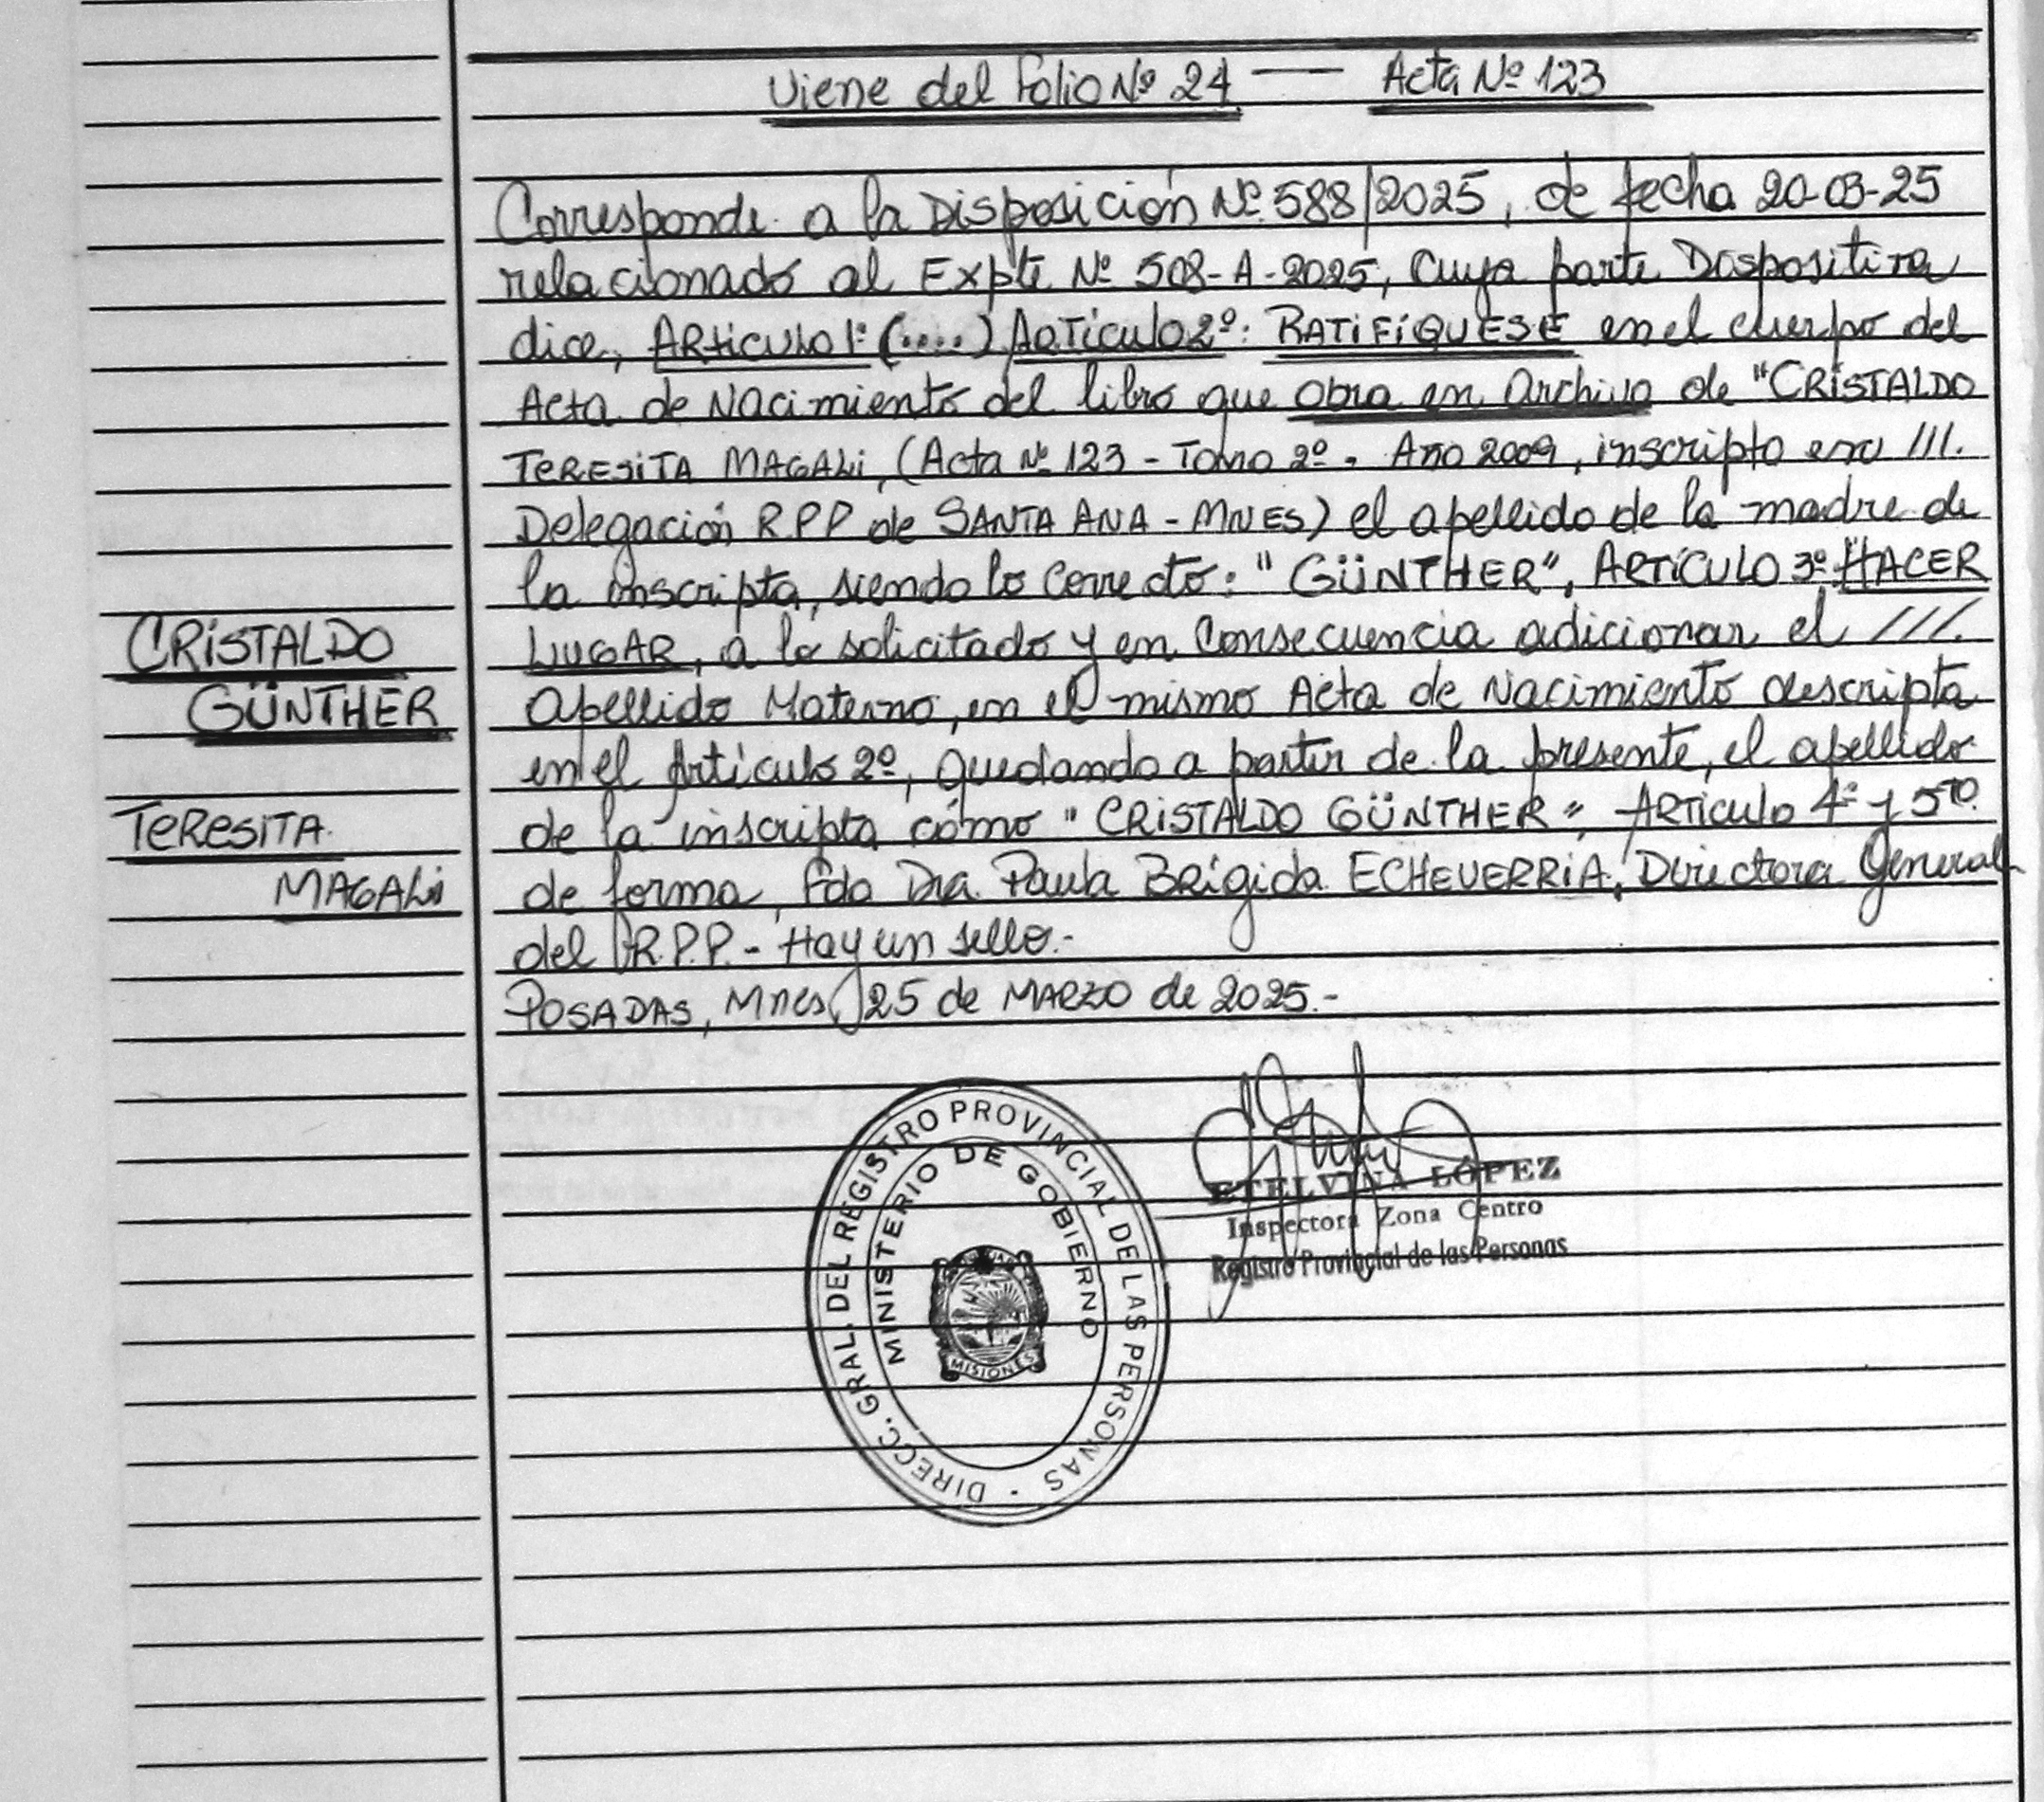 Viene del Folio Nº 24 — Acta Nº 123
Corresponde a la Disposición Nº 588/2025, de fecha 20-03-25
relacionado al Expte Nº 508-A-2025, cuya parte Dispositiva
dice, ARTICULO 1º (....) ARTÍCULO 2º: RATIFÍQUESE en el cuerpo del
Acta de Nacimiento del libro que obra en archivo de "CRISTALDO
TERESITA MAGALI, (Acta Nº 123 - Tomo 2º - Año 2009, inscripto en ///.
Delegación R.P.P de SANTA ANA - MNES) el apellido de la madre de
la inscripta, siendo lo correcto: "GÜNTHER", ARTÍCULO 3º HACER
CRISTALDO
LUGAR, a lo solicitado y en consecuencia adicionar el ///.
GÜNTHER
apellido Materno, en el mismo Acta de Nacimiento descripta
en el Artículo 2º, quedando a partir de la presente, el apellido
TERESITA
de la inscripta cómo "CRISTALDO GÜNTHER", ARTICULO 4º y 5TO
MAGALI
de forma, Fdo Dra. Paula Brígida ECHEVERRIA, Directora General
del R.P.P. - Hay un sello.-
POSADAS, Mnes, 25 de MARZO de 2025.-
DIRECC. GRAL. DEL REGISTRO PROVINCIAL DE LAS PERSONAS
MINISTERIO DE GOBIERNO
MISIONES
ETELVINA LÓPEZ
Inspectora Zona Centro
Registro Provincial de las Personas